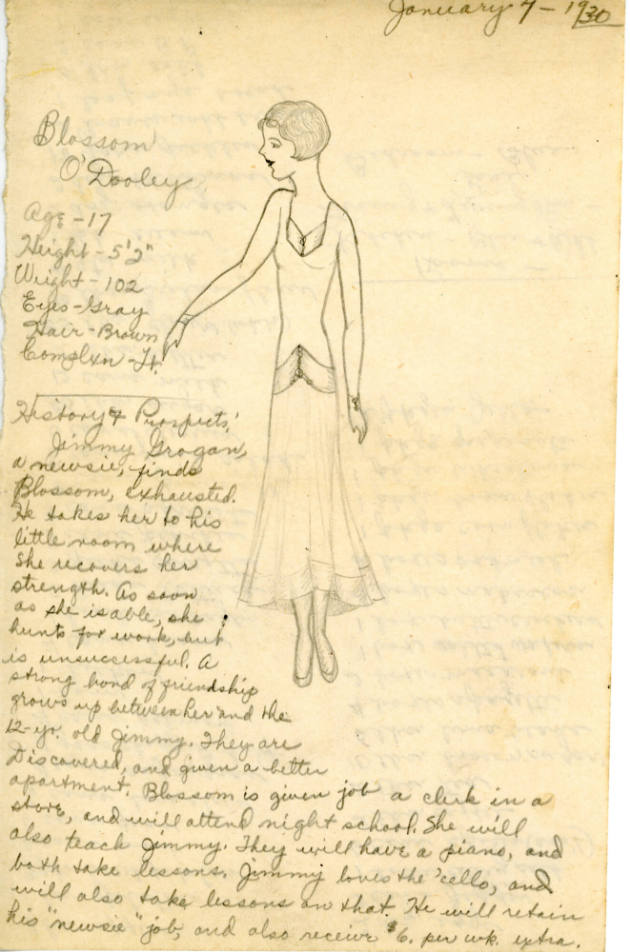 January 4 - 1930
Blossom
O'Dooley
Age - 17
Height - 5'2"
Weight - 102
Eyes - Gray
Hair - Brown
Complxn - Lt.
History & Prospects:
Jimmy Grogan,
a newsie, finds
Blossom, exhausted.
He takes her to his
little room where
she recovers her
strength. As soon
as she is able, she
hunts for work, but
is unsuccessful. A
strong bond of friendship
grows up between her and the
12-yr. old Jimmy. They are
discovered, and given a better
apartment. Blossom is given job a clerk in a
store, and will attend night school. She will
also teach Jimmy. They will have a piano, and
both take lessons. Jimmy loves the 'cello, and
will also take lessons on that. He will retain
his "newsie" job, and also receive $6. per wk. extra.